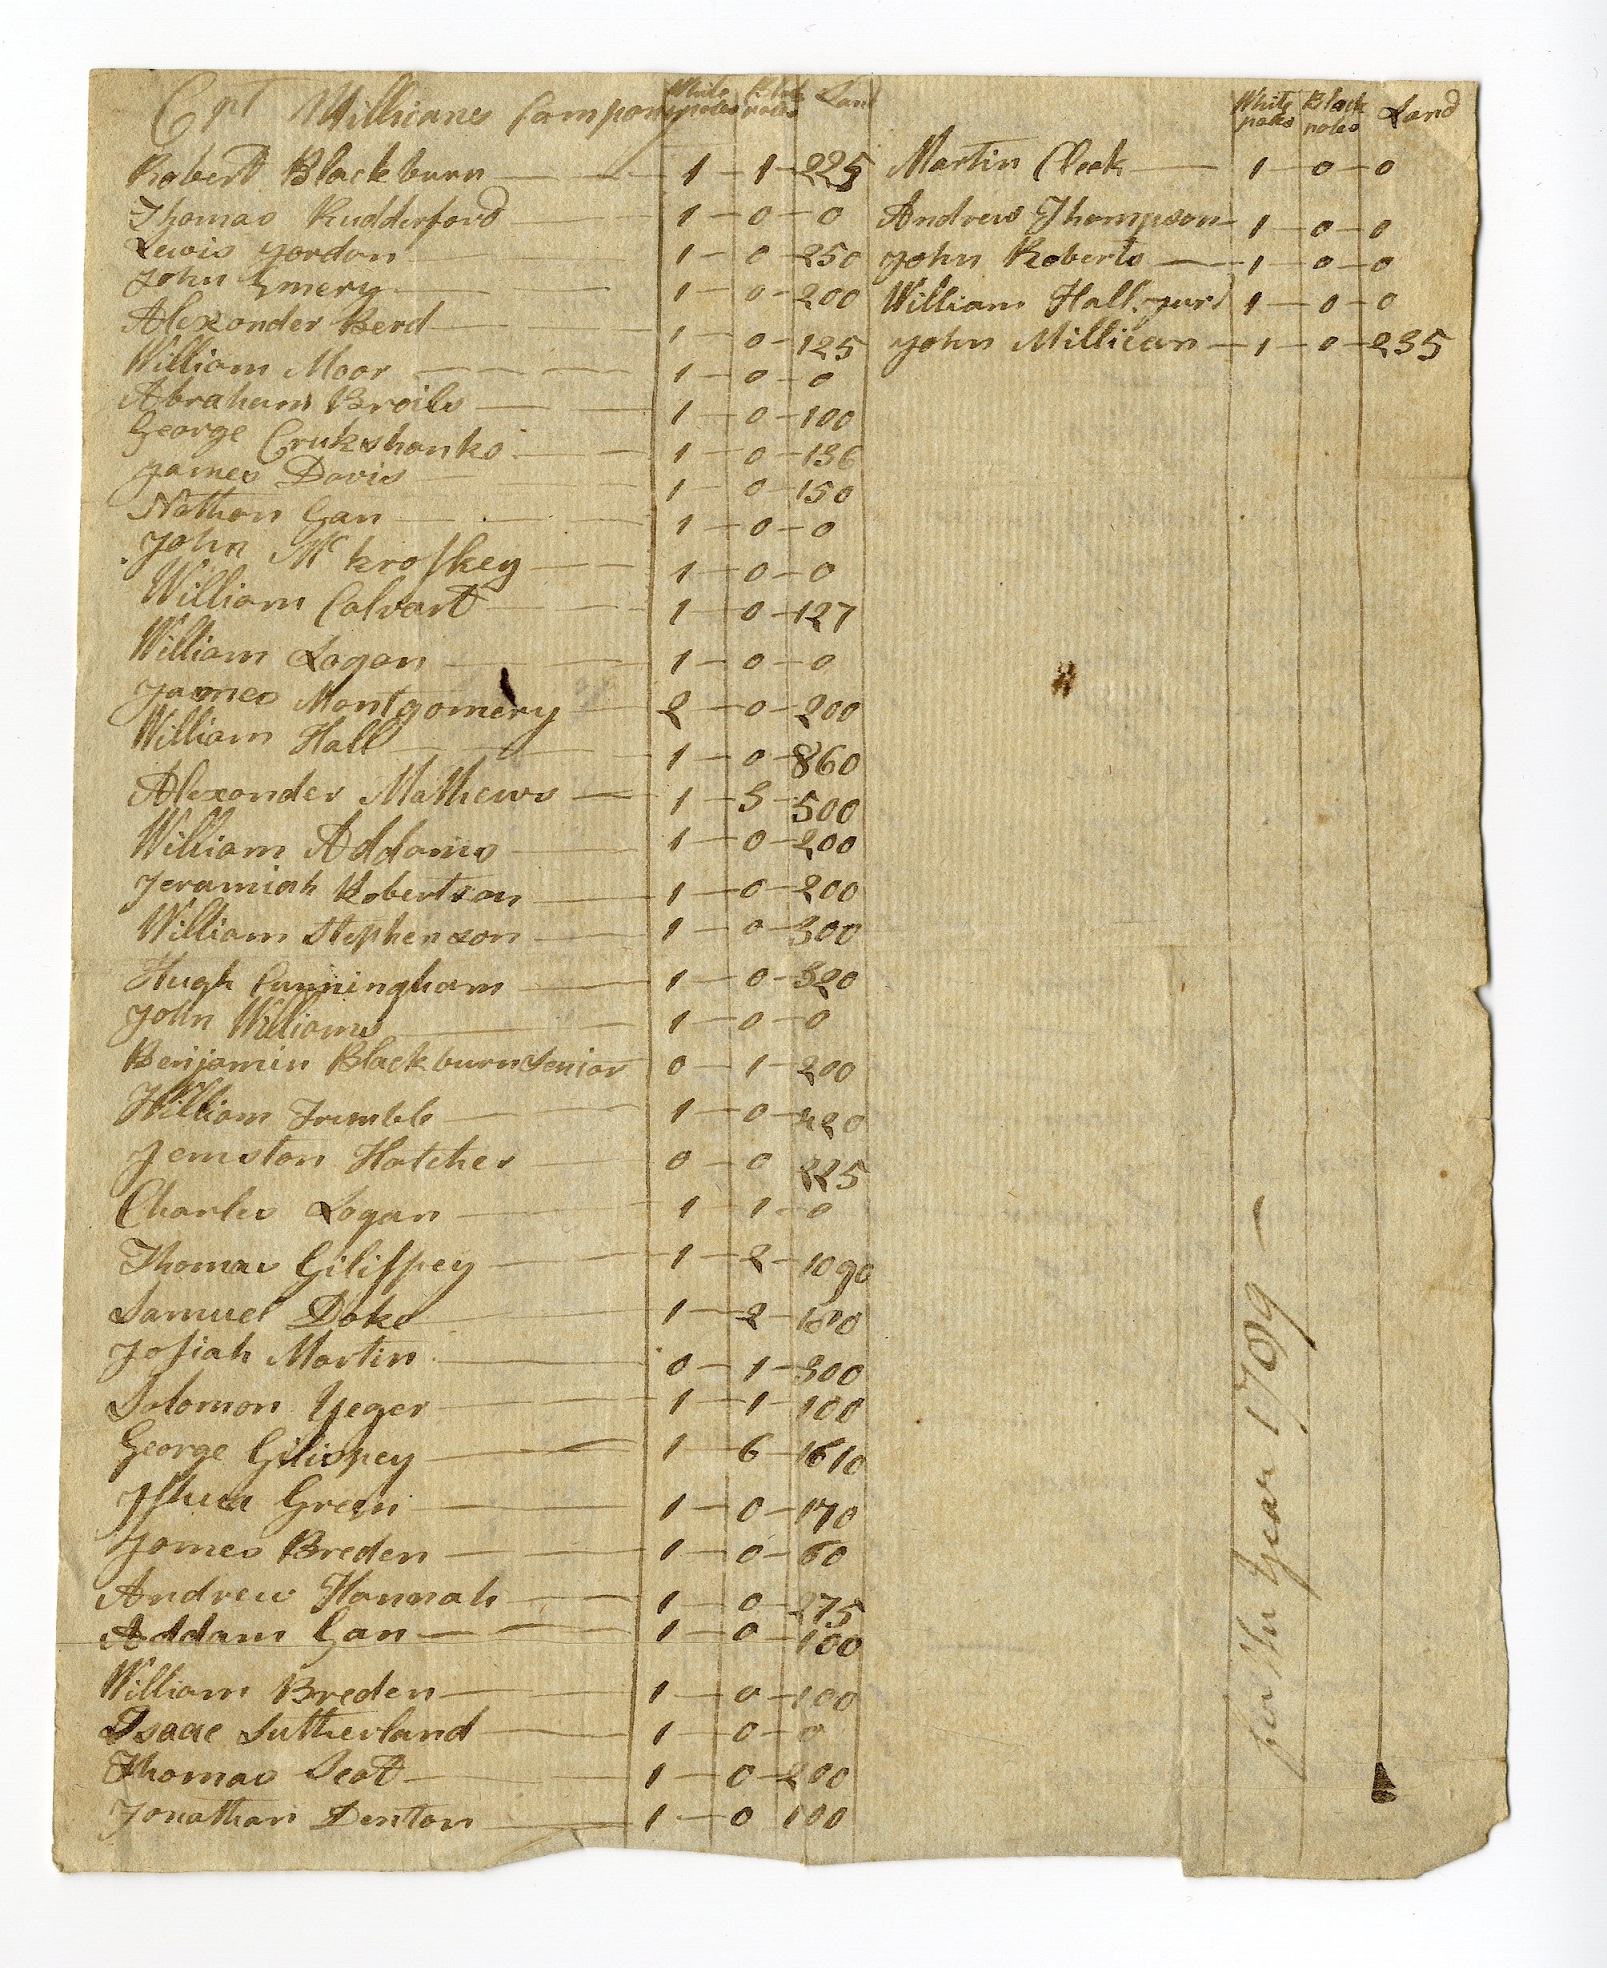 Cpt Millicanes Company White poles Black poles Land
Robert Blackburn 1 - 1 - 225
Thomas Rudderford 1 - 0 - 0
Lewis Jordon 1 - 0 - 250
John Emery 1 - 0 - 200
Alexander Berd 1 - 0 - 125
William Moor 1 - 0 - 0
Abraham Broils 1 - 0 - 100
George Crukshanks 1 - 0 - 136
James Davis 1 - 0 - 150
Nathan Gan 1 - 0 - 0
John Mc kroskey 1 - 0 - 0
William Calvart 1 - 0 - 127
William Logan 1 - 0 - 0
James Montgomery 2 - 0 - 200
William Hall 1 - 0 - 860
Alexander Mathews 1 - 3 - 500
William Addams 1 - 0 - 200
Jeramiah Robertson 1 - 0 - 200
William Stephenson 1 - 0 - 300
Hugh Cunningham 1 - 0 - 320
John Williams 1 - 0 - 0
Benjamin Blackburn Senior 0 - 1 - 200
William Trimble 1 - 0 - 420
Jemston Hatcher 0 - 0 225
Charles Logan 1 1 - 0
Thomas Gilispey 1 - 2 - 1090
Samuel Doke 1 - 2 -
Josiah Martin 0 - 1 - 300
Solomon Yeger 1 - 1 - 100
George Gilispey 1 - 6 - 1610
Green 1 - 0 - 170
James Breden 1 - 0 - 60
Andrew Hannah 1 - 0 - 275
Addam Gan 1 - 0 - 100
William Breden 1 - 0 - 100
Isaac Sutherland 1 - 0 - 0
Thomas Scot 1 - 0 - 200
Jonathan Denton 1 - 0 100
White poles Black poles Land
Martin Cleek 1 - 0 - 0
Andrew Thompson 1 - 0 - 0
John Roberts 1 - 0 - 0
William Hall Junr 1 - 0 - 0
John Millican 1 - 0 - 235
for the Year 1789